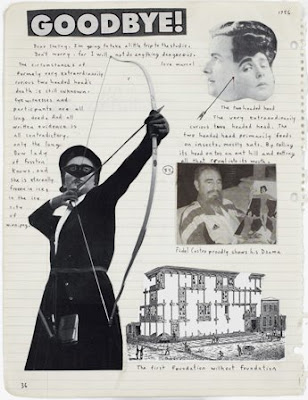 GOODBYE!
I'm going to take a little trip to the studios.
Don't worry, for I will not do anything dangerous.
love marcel
The circumstances of
formely very extraordinarily
curious two headed head's
death is still unknown:
eyewitnesses and
participants are all
long dead. And all
written evidence is
all contradictory.
only the long
Bow lady
of
knows, and
she is eternally
frozen in ice
in the ice
of
winnipeg
The two headed head
The very extraordinarily
curious two headed head. The
two headed head primarily feeds
on insects, mostly ants. By rolling
its head on an ant hill and eating
all that its mouths.
Fidel Castro proudly shows his Drama
The first foundation without foundation
36